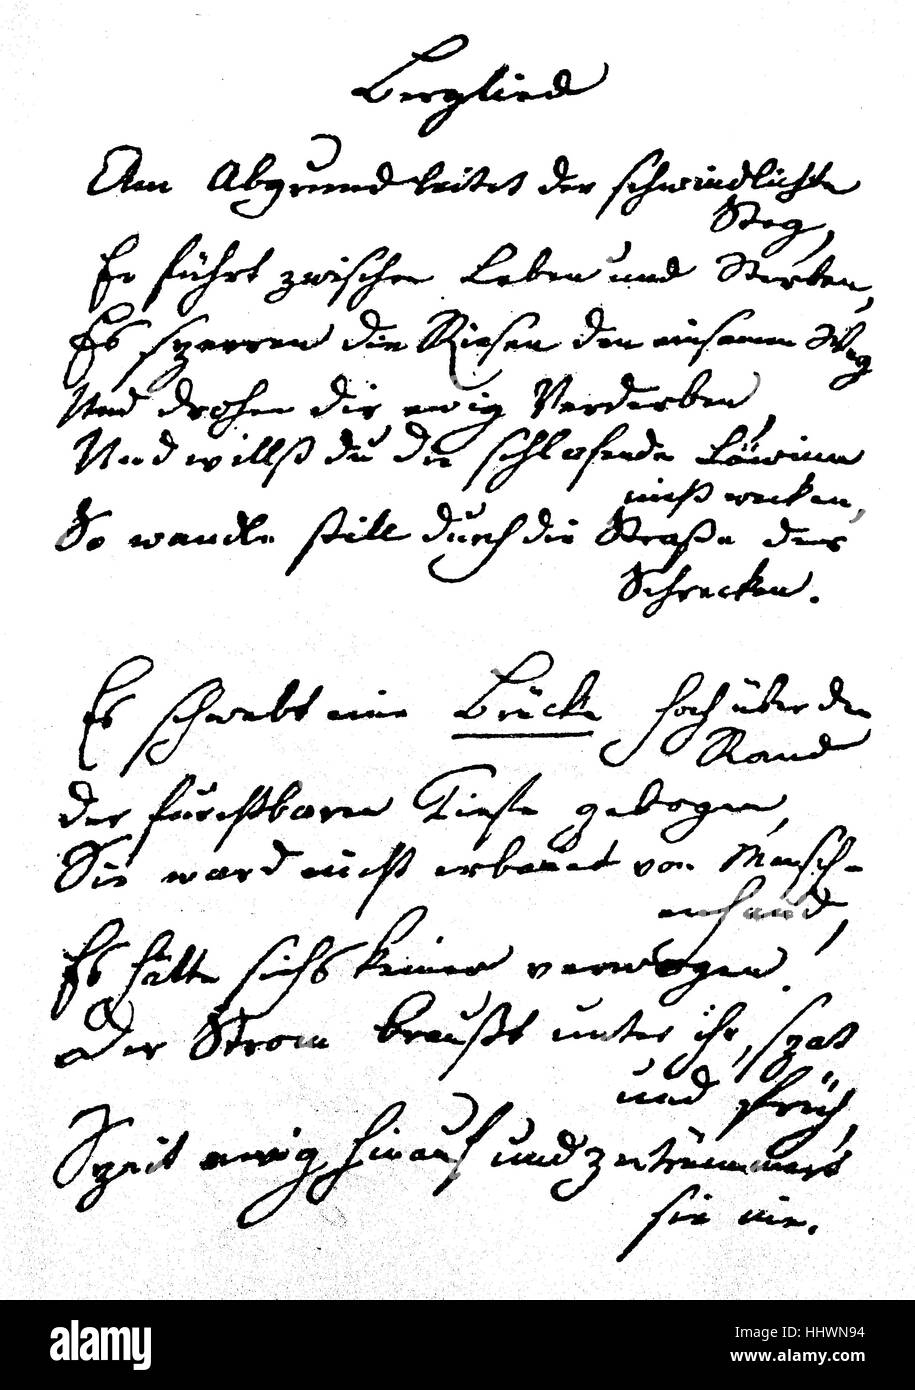 Berglied
Am Abgrund leitet der schwindlichte
Steg,
Er führt zwischen Leben und Sterben,
Es sperren die Riesen den einsamen Weg
Und drohen dir ewig Verderben,
Und willst du die schlafende Löwinn
nicht wecken,
So wandle still durch die Straße der
Schrecken.
Es schwebt eine Brücke hoch über den
Rand
Der furchtbaren Tiefe gebogen,
Sie ward nicht erbauet von Mensch-
enhand,
Es hätte sichs keiner verwogen!
Der Strom braußt unter ihr, spat
und früh,
Speit ewig hinauf und zertrümmert
sie nie.
alamy
alamy stock photo
HHWN94
www.alamy.com